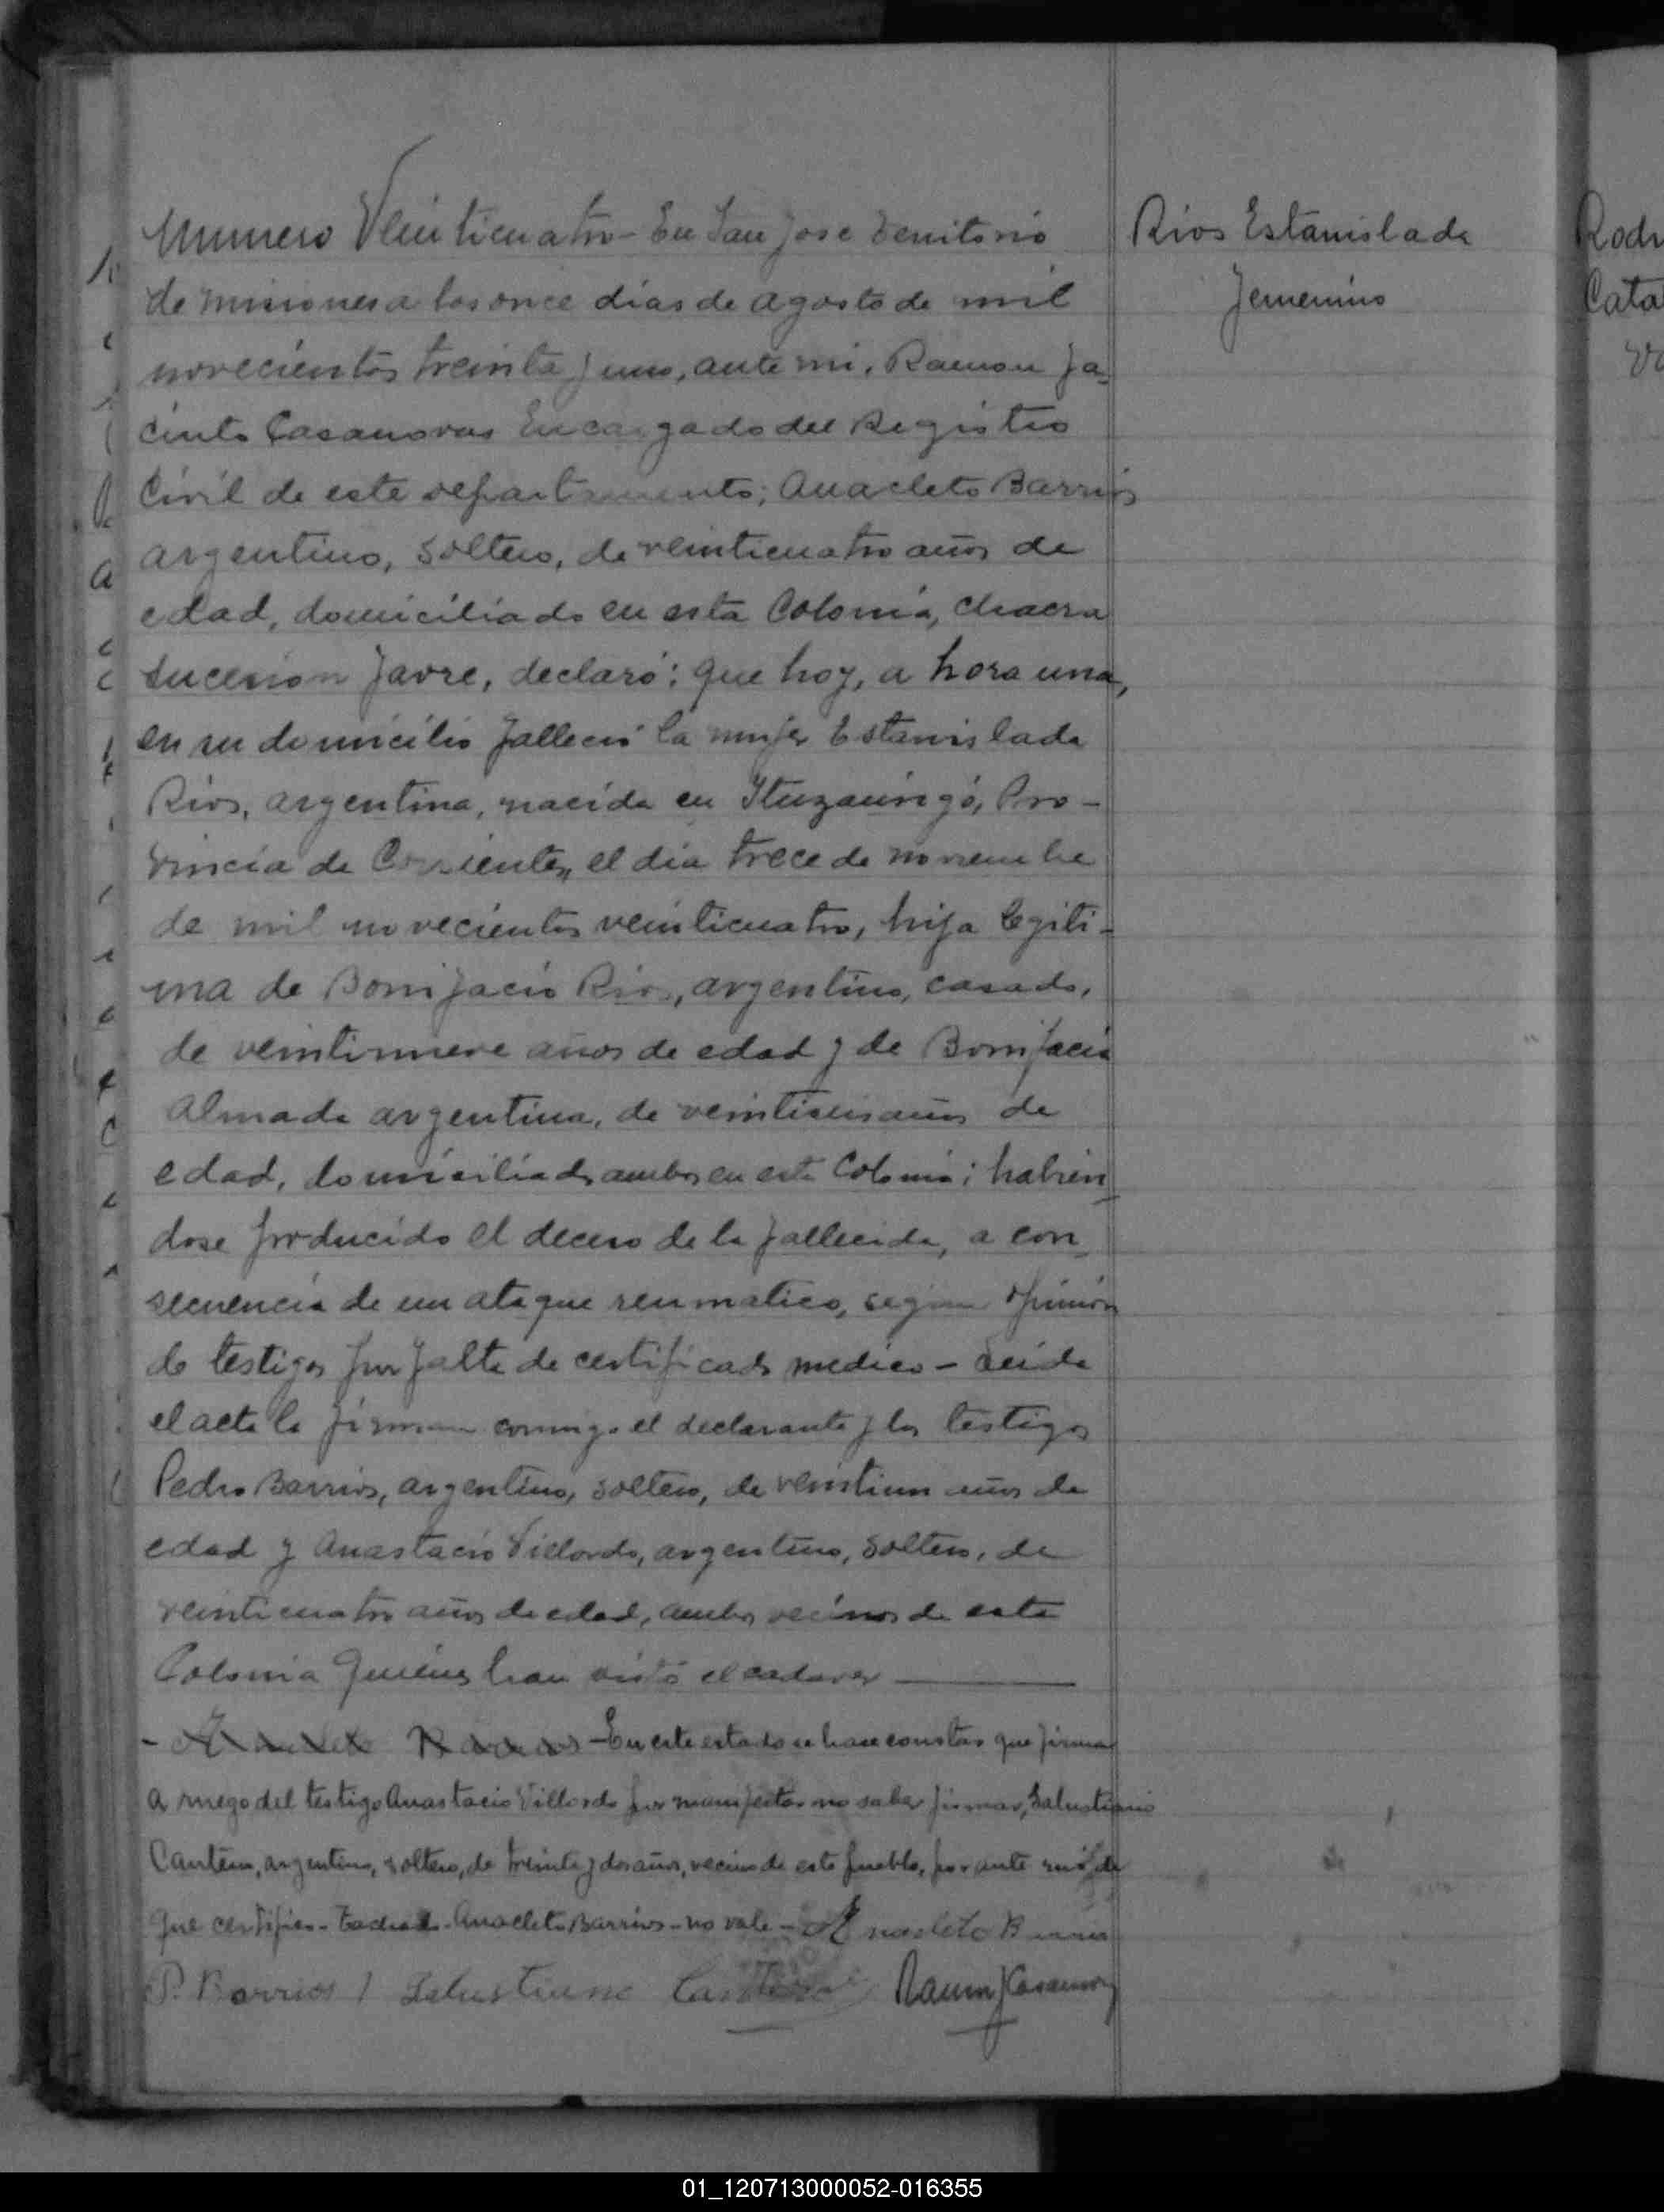 Numero Veinticuatro - En San Jose Territorio
de Misiones a los once dias de agosto de mil
novecientos treinta y uno, ante mi, Ramon Ja-
cinto Casanovas Encargado del Registro
Civil de este departamento; Anacleto Barrios
argentino, soltero, de veinticuatro años de
edad, domiciliado en esta Colonia, chacra
sucesion Favre, declaró: que hoy, a hora una,
en su domicilio falleció la mujer Estanislada
Rios, argentina, nacida en Ituzaingó, Pro-
vincia de Corrientes, el dia trece de noviembre
de mil novecientos veinticuatro, hija legiti-
ma de Bonifacio Rios, argentino, casado,
de veintinueve años de edad y de Bonifacia
Almada argentina, de veintiseis años de
edad, domiciliados ambos en esta Colonia; habien-
dose producido el deceso de la fallecida, a con-
secuencia de un ataque reumatico, segun opinión
de testigos por falta de certificado medico - Leida
el acta la firman conmigo el declarante y los testigos
Pedro Barrios, argentino, soltero, de veintiun años de
edad y Anastacio Villordo, argentino, soltero, de
veinticuatro años de edad, ambos vecinos de esta
Colonia quienes han visto el cadaver
- Anacleto Barrios - En este estado se hace constar que firma
a ruego del testigo Anastacio Villordo por manifestar no saber firmar, Salustiano
Cantero, argentino, soltero, de treinta y dos años, vecino de este pueblo, por ante mi de
que certifico - Tachado - Anacleto Barrios - no vale - Anacleto Barrios
P. Barrios / Salustiano Cantero Ramon J Casanovas
Rios Estanislada
Femenino
Rodr
Cata
01_120713000052-016355